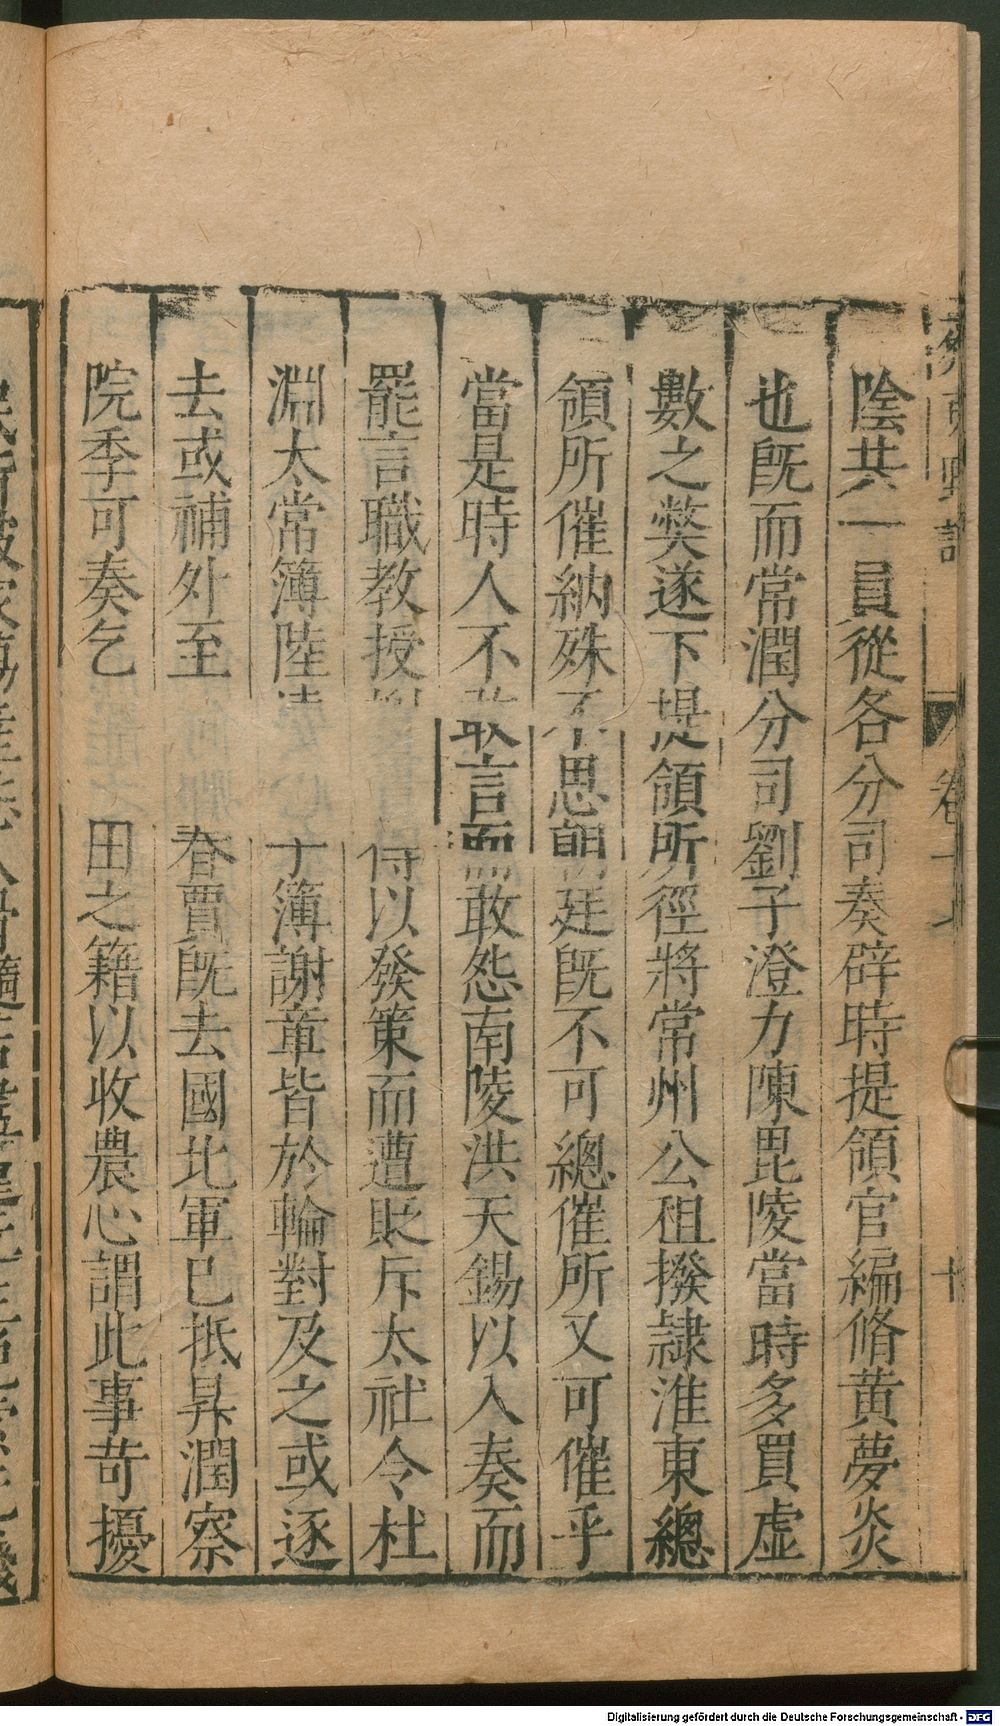 陰共一員從各分司奏辟時提領官編脩黄夢炎
也旣而常潤分司劉子澄力陳毘陵當時多買虚
數之獘遂下提領所徑將常州公租撥隷淮東總
領所催納殊不思朝廷旣不可總催所又可催乎
當是時人不敢言而敢怨南陵洪天錫以入奏而
罷言職教授 待以發策而遭貶斥太社令杜
淵太常簿陸 子簿謝章皆於輪對及之或逐
去或補外至 春賈旣去國北軍已抵昇潤察
院季可奏乞 田之籍以收農心謂此事苛擾
野語
卷十
十
Digitalisierung gefördert durch die Deutsche Forschungsgemeinschaft - DFG